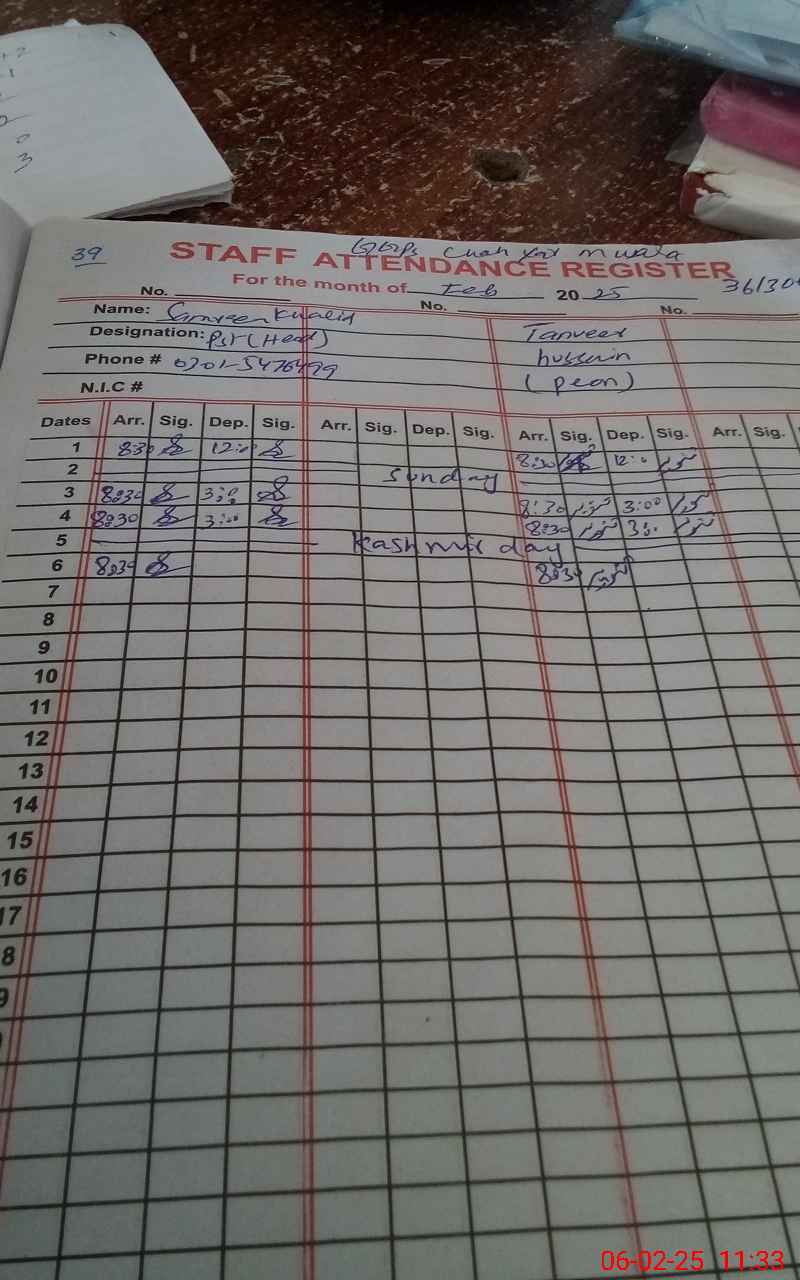 39
STAFF ATTENDANCE REGISTER
For the month of Feb 2025
No. No. No.
Name: Khalid
Designation: PST (Head)
Phone #
N.I.C #
Tanveer
hussain
(peon)
Dates Arr. Sig. Dep. Sig. Arr. Sig. Dep. Sig. Arr. Sig. Dep. Sig. Arr. Sig.
1 8:30 12:0 8:30 12:0
2 Sunday
3 8:30 3:0 8:30 3:00
4 8:30 3:00 8:30 3:0
5 Kashmir day
6 8:30 8:30
7
8
9
10
11
12
13
14
15
16
17
8
9
06-02-25 11:33